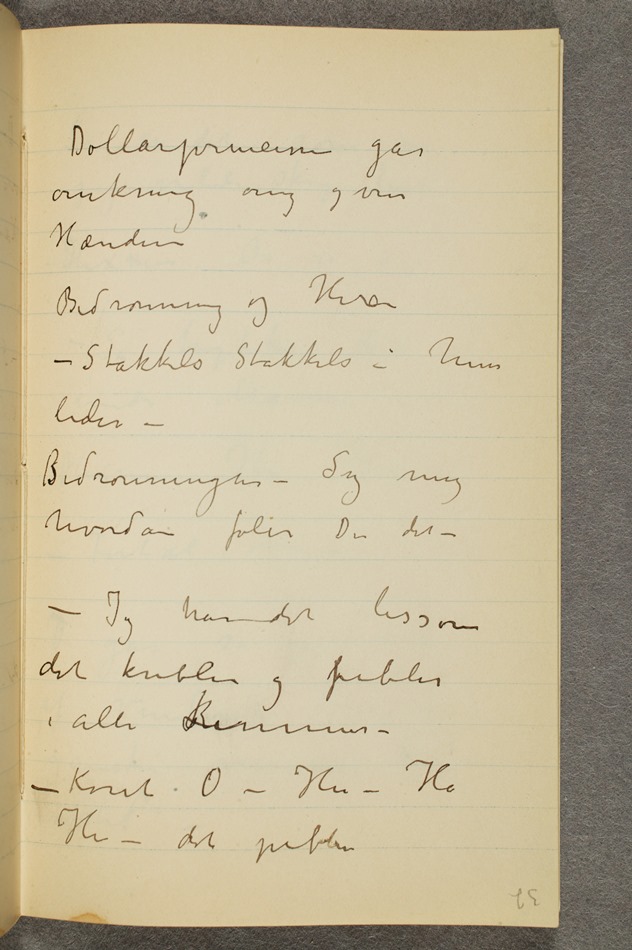 Dollarprinsessen går
omkring og vrir
Hænderne
Bidronning og Hæren
– Stakkels Stakkels – hun
lider –
Bidronningen – Sig mig
hvordan føler De det –
– Jeg har det lissom
det kribler og pibler
i alle Rummer –
– Koret. O – Hu – Ha
Hu – det pibler